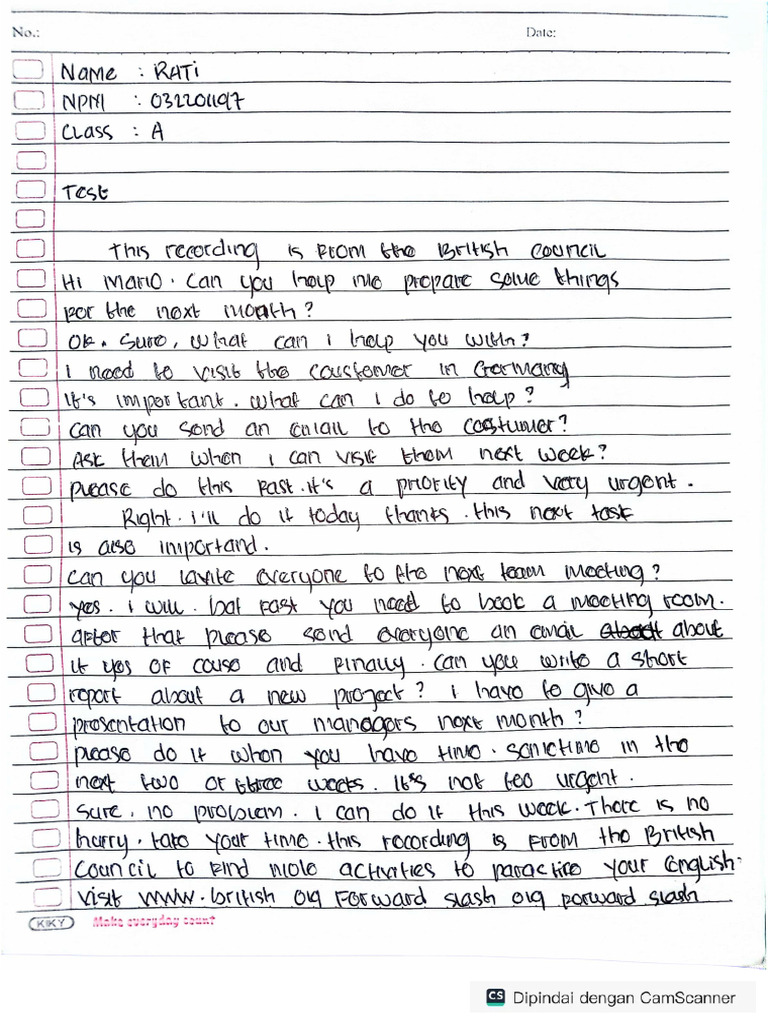 No.:
Date:
Name : RATi
NPM : 032201197
Class : A
Test
This recording is from the British Council
Hi Mario. Can you help me prepare some things
por the next month?
Ok. Sure, what can i help you with?
i need to visit the coustomer in Germany
it's important. what can i do to help?
can you send an email to the costumer?
Ask them when i can visit them next week?
please do this Fast. it's a priority and very urgent.
Right. i'll do it today thanks. this next task
is also importand.
can you invite everyone to the next team meeting?
yes. i will. but Fast you need to book a meeting room.
after that please send everyone an email about
it yes of couse and Finally. can you write a short
report about a new project? i have to give a
presentation to our managers next month?
please do it when you have time. sometime in the
next two or three weeks. it's not too urgent.
Sure. no problem. i can do it this week. There is no
harry. take your time. this recording is From the British
Council to Find mole activities to paractice your English.
Visit www.british org Forward slash org porward slash
KIKY
Make everyday count
CS Dipindai dengan CamScanner